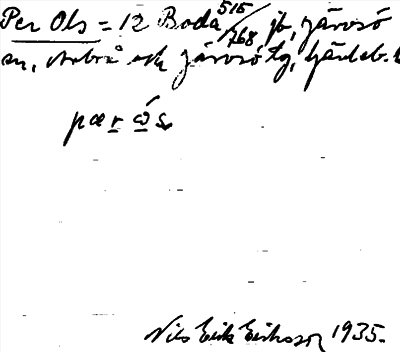 Per Ols = 12 Boda 515/768 jb, Järvsö
sn, Arbrå och Järvsö tg, Gävleb. l
pær ώ s
Nils Erik Eriksson 1935.